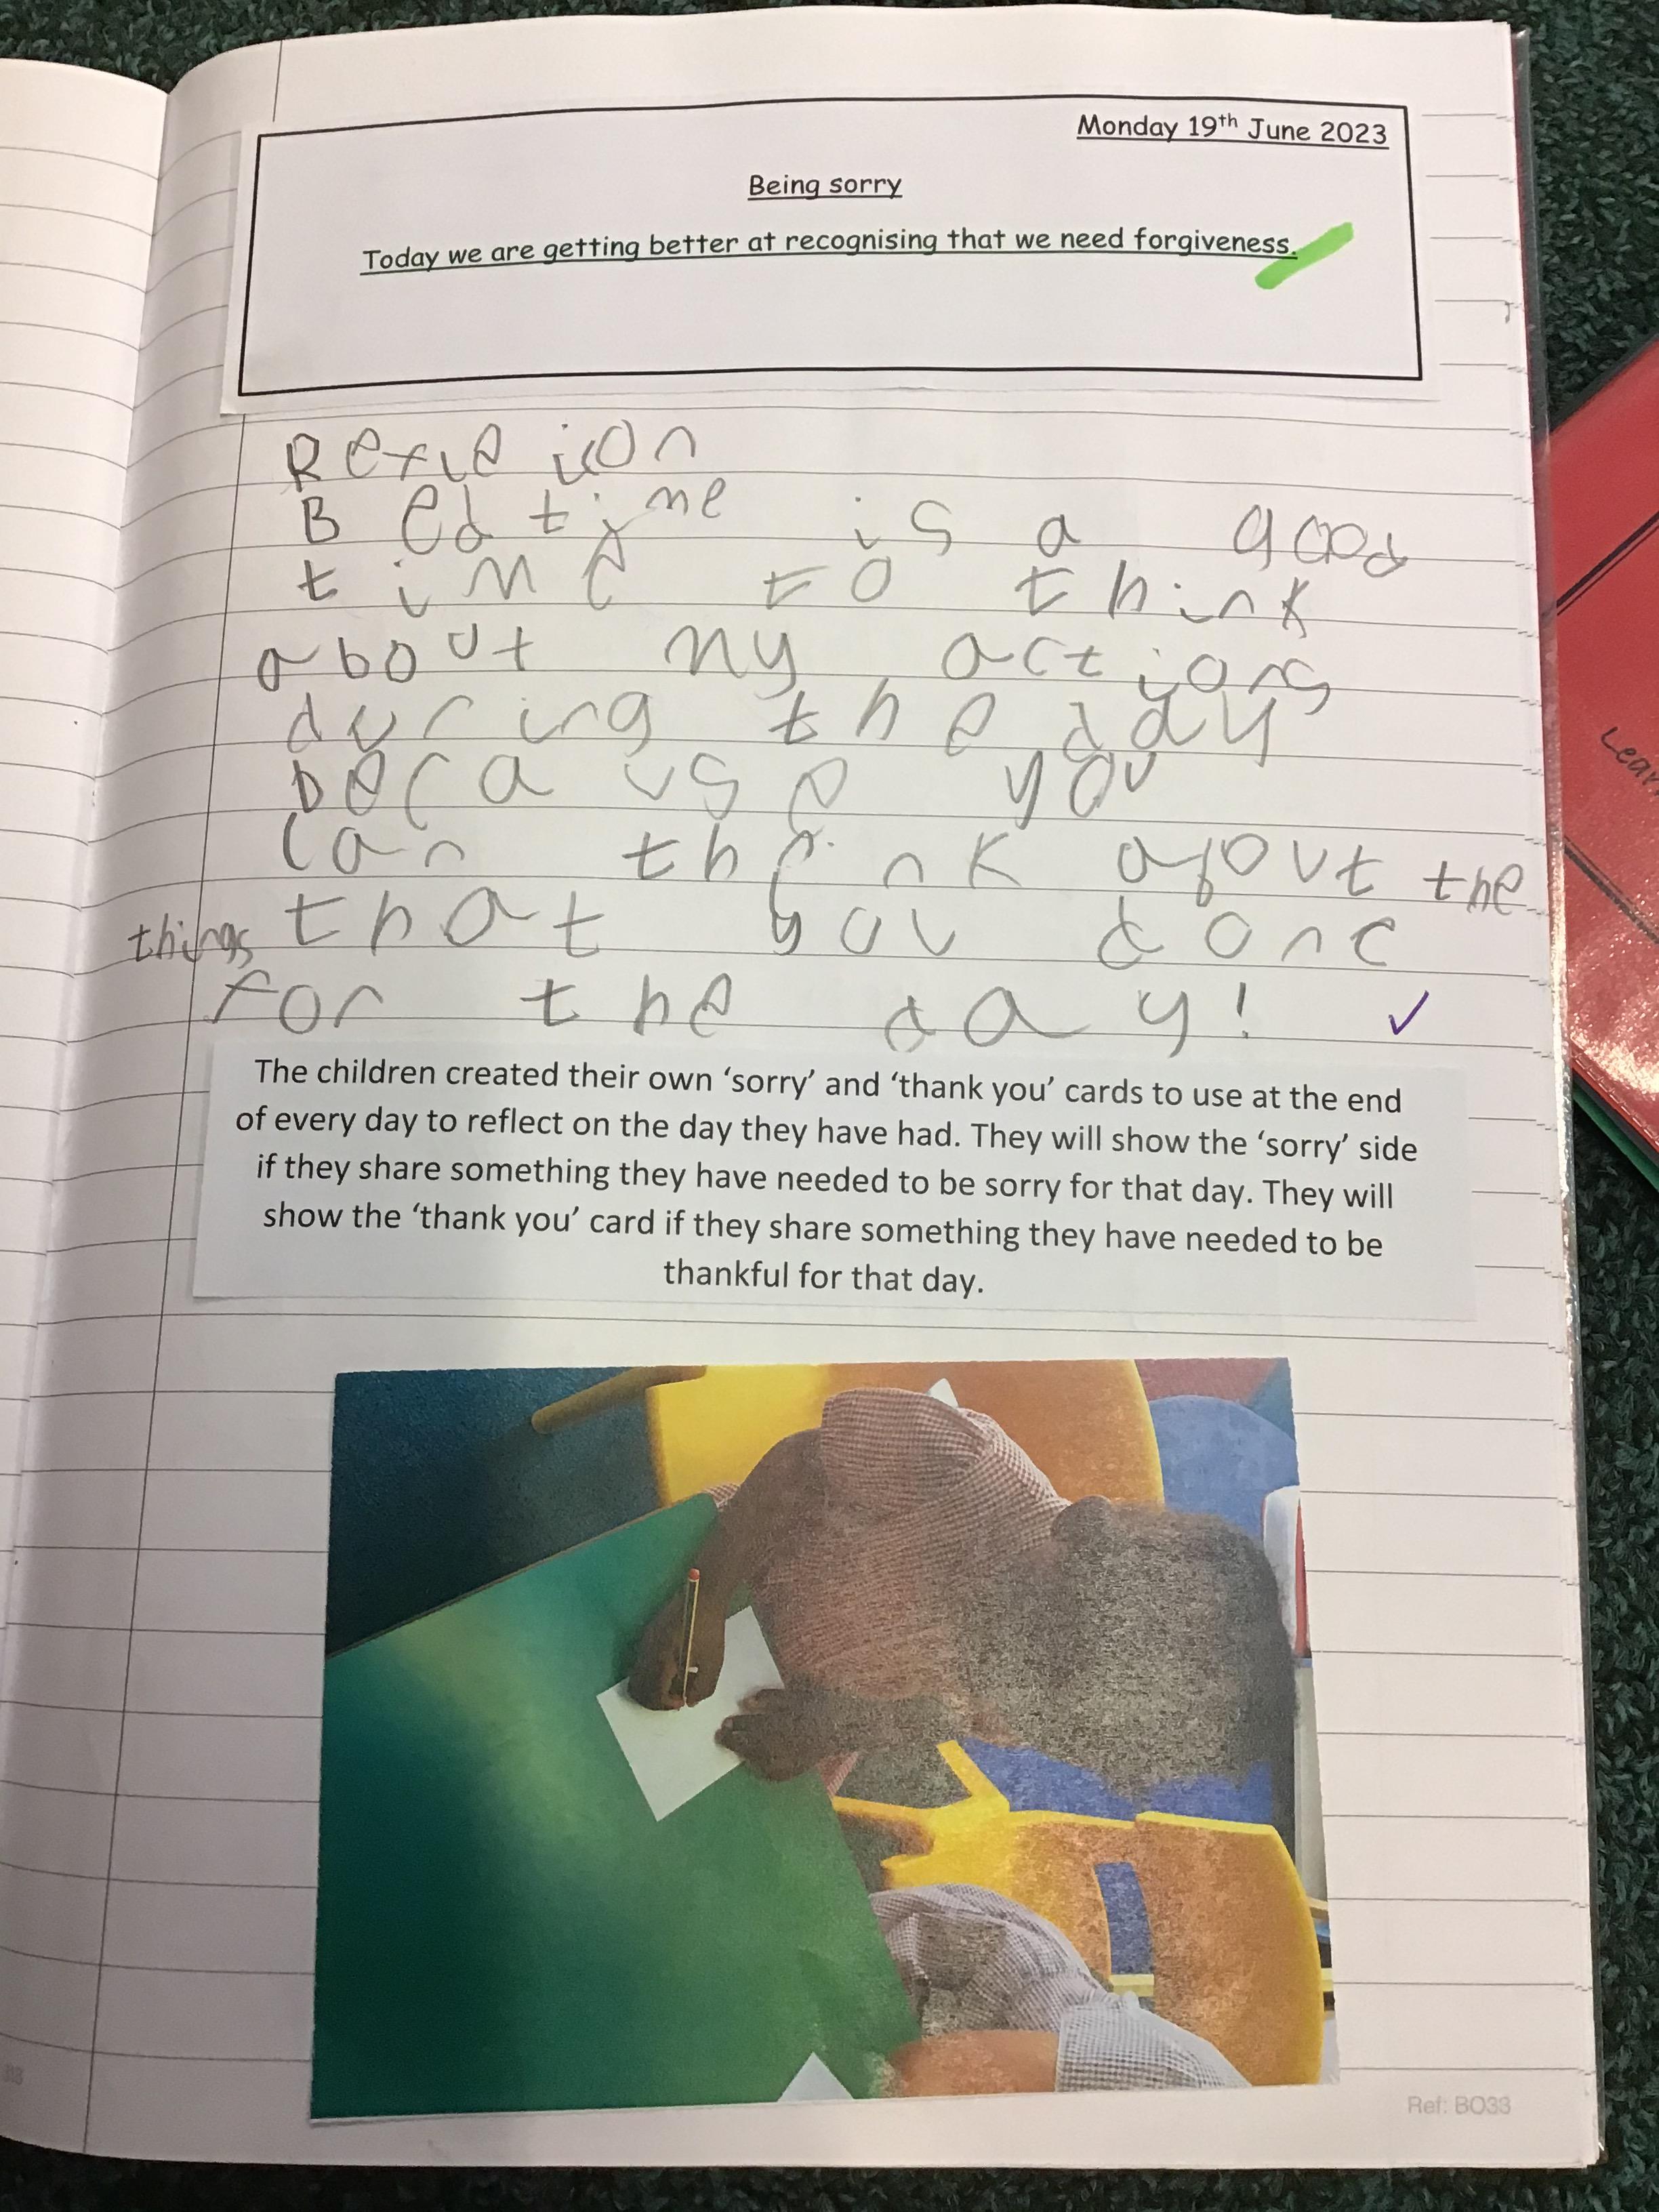 Monday 19th June 2023
Being sorry
Today we are getting better at recognising that we need forgiveness.
Refleion
Bedtime is a good
time to think
about my actions
during the day
because you
can think about the
things that you done
for the day!
The children created their own ‘sorry’ and ‘thank you’ cards to use at the end
of every day to reflect on the day they have had. They will show the ‘sorry’ side
if they share something they have needed to be sorry for that day. They will
show the ‘thank you’ card if they share something they have needed to be
thankful for that day.
Ref: BO33